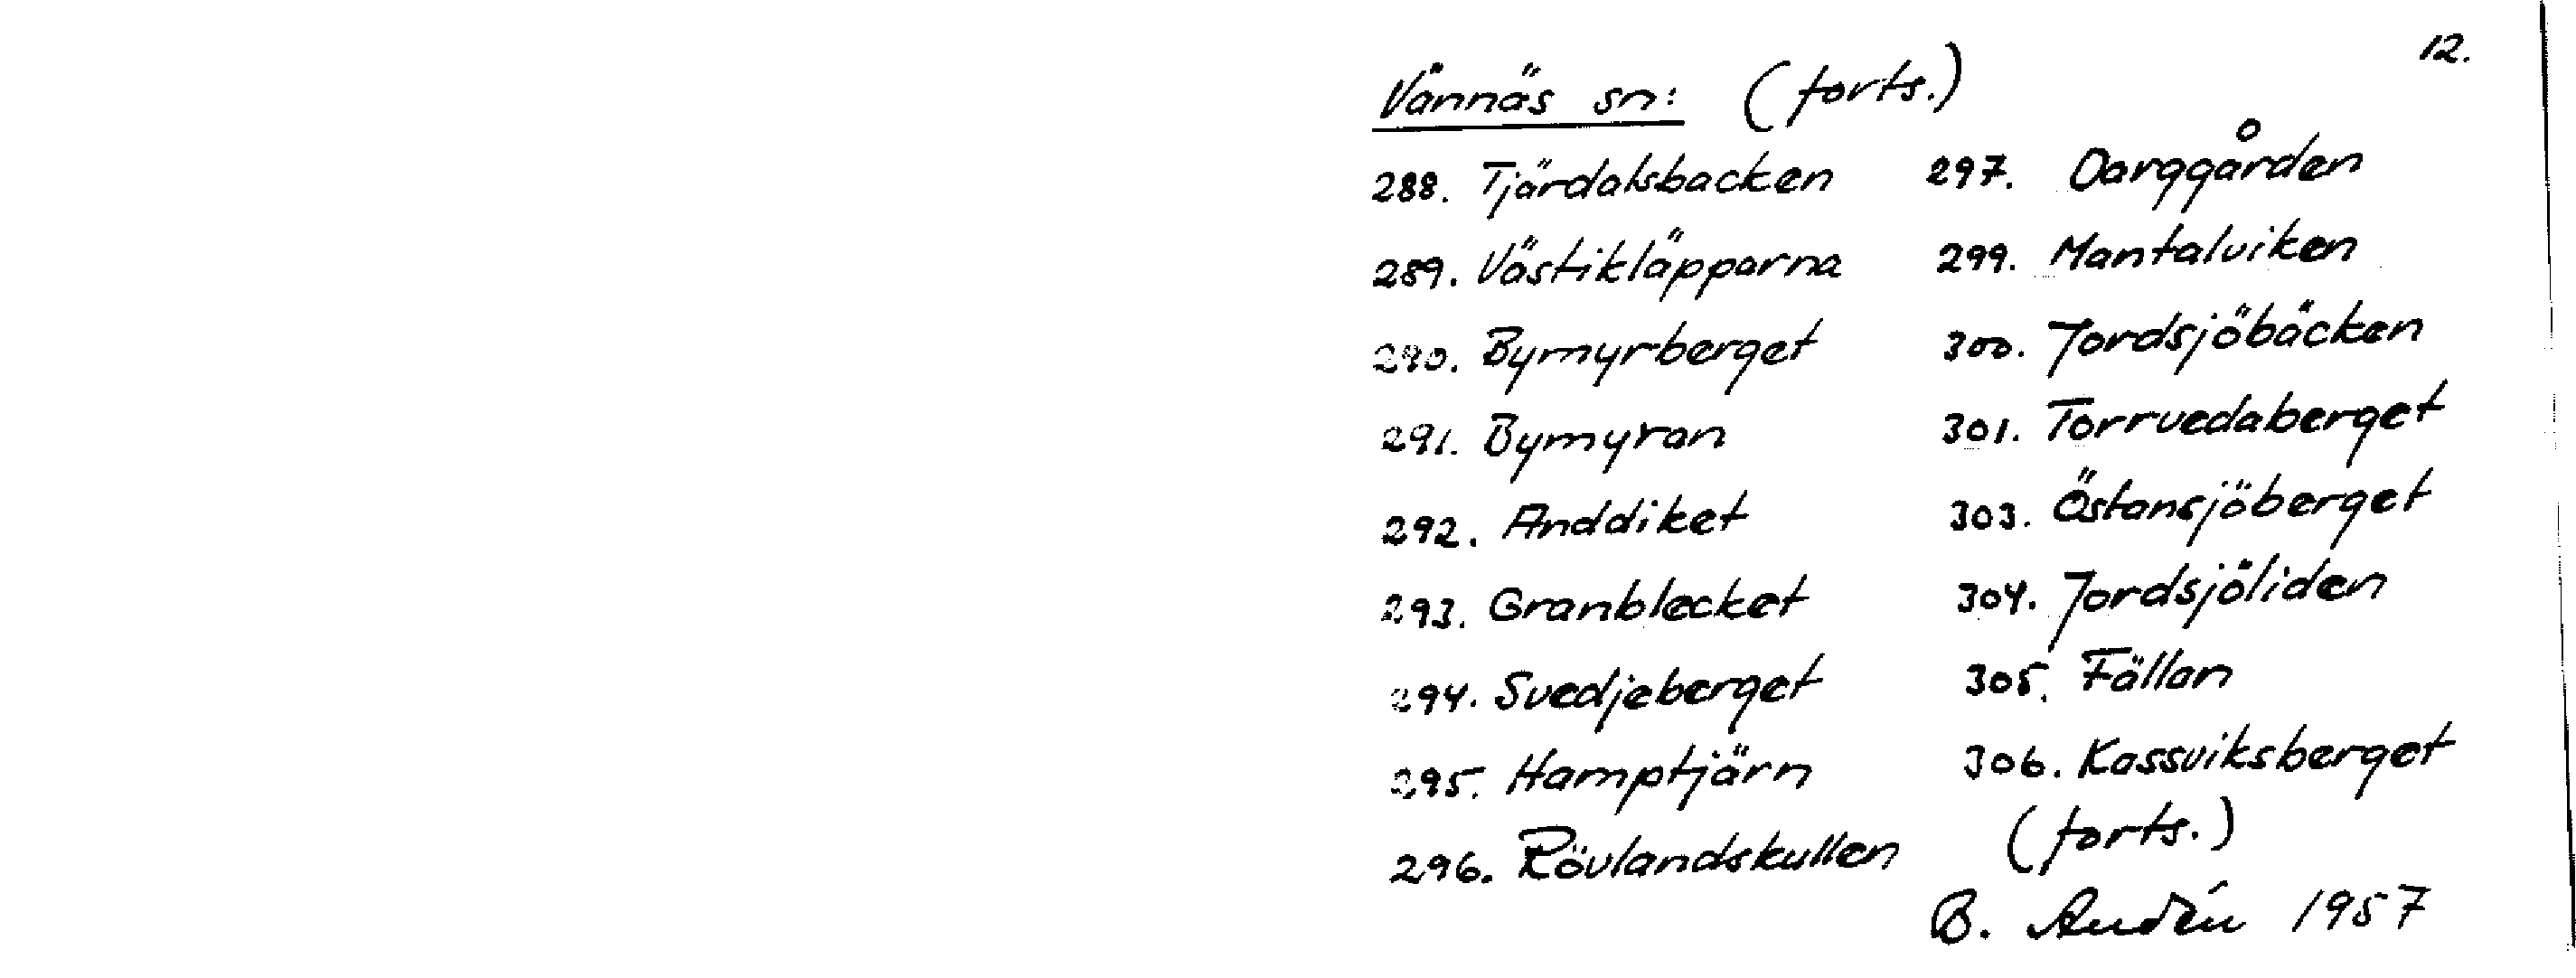 12.
Vännäs sn: (forts.)
288. Tjärdalsbacken
289. Västikläpparna
290. Bymyrberget
291. Bymyran
292. Anddiket
293. Granblecket
294. Svedjeberget
295. Hamptjärn
296. Rövlandskullen
297. Darggården
299. Mantalviken
300. Jordsjöbäcken
301. Torrvedaberget
303. Östansjöberget
304. Jordsjöliden
305. Fällan
306. Kassviksberget
(forts.)
B. Audén 1957